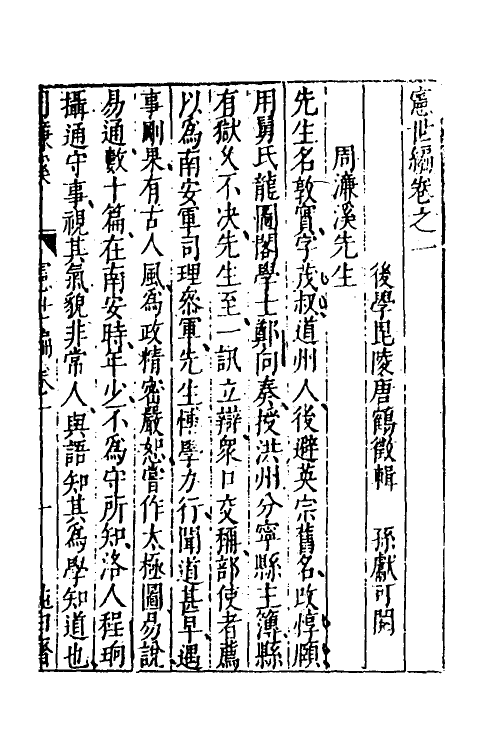 憲世編卷之一
後學毘陵唐鶴徵輯　孫獻可閱
周濂溪先生
先生名敦實字茂叔道州人後避英宗舊名改惇頤
用舅氏龍圖閣學士鄭向奏授洪州分寧縣主簿縣
有獄久不决先生至一訊立辯衆口交稱部使者薦
以爲南安軍司理叅軍先生博學力行聞道甚早遇
事剛果有古人風爲政精密嚴恕嘗作太極圖易說
易通數十篇在南安時年少不爲守所知洛人程珦
攝通守事視其氣貌非常人與語知其爲學知道也